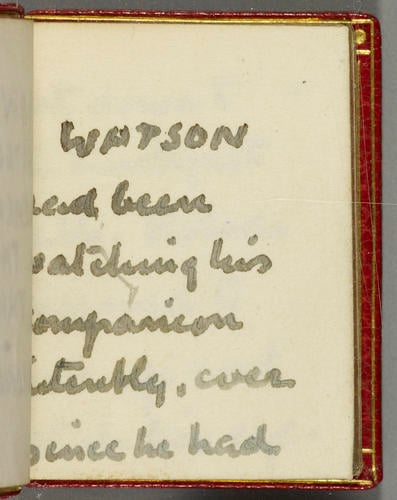 WATSON
had been
watching his
companion
intently, ever
since he had